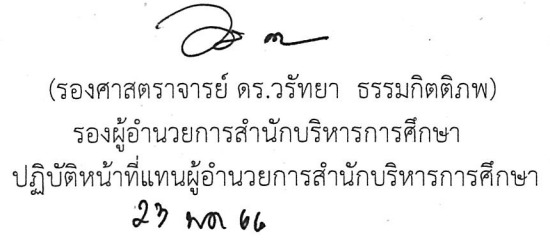 (รองศาสตราจารย์ ดร.วรัทยา ธรรมกิตติภพ)
รองผู้อำนวยการสำนักบริหารการศึกษา
ปฏิบัติหน้าที่แทนผู้อำนวยการสำนักบริหารการศึกษา
23 พค 66